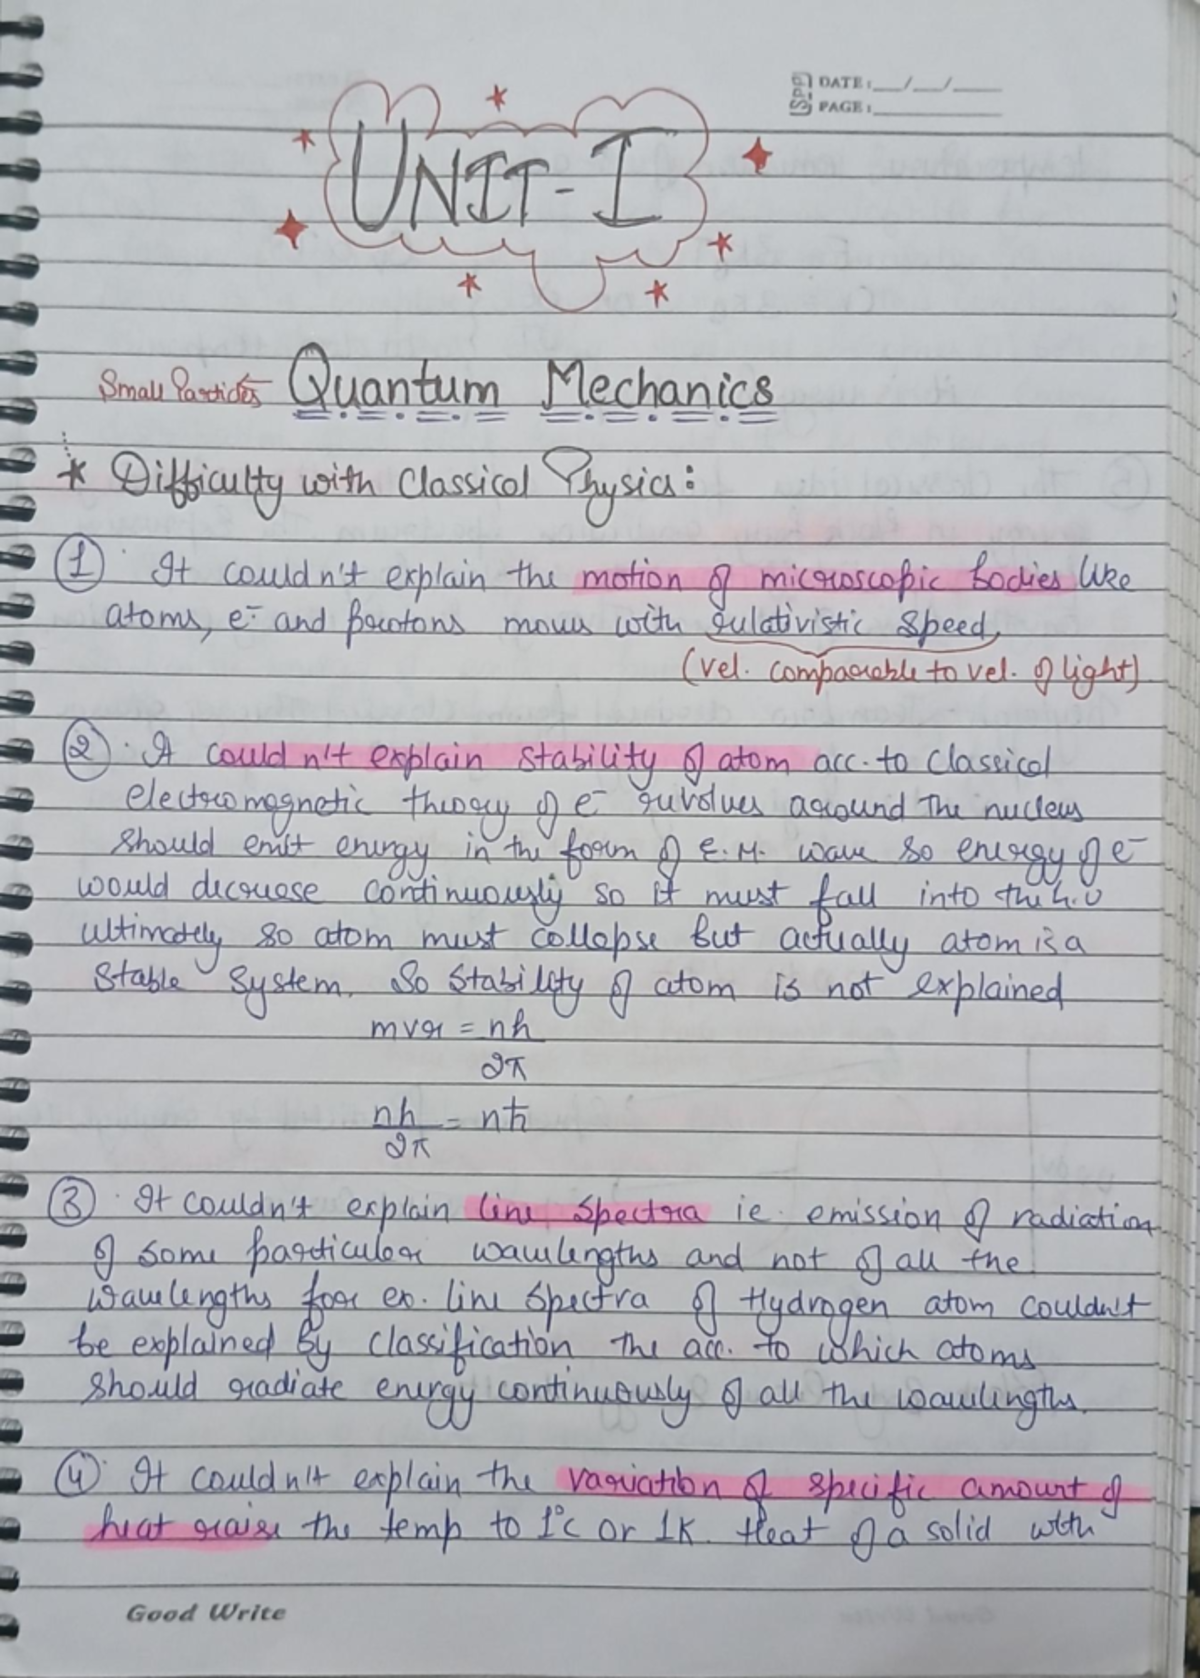 SPD DATE:__/__/___
PAGE:
UNIT-I
Small Particles Quantum Mechanics
* Difficulty with Classical Physics:
① It couldn't explain the motion of microscopic bodies like
atoms, e⁻ and protons moves with relativistic speed
(vel. comparable to vel. of light)
② It couldn't explain stability of atom acc. to Classical
electromagnetic theory of e⁻ revolves around the nucleus
should emit energy in the form of E.M. wave so energy of e⁻
would decrease continuously so it must fall into the
ultimately so atom must collapse but actually atom is a
stable system. So stability of atom is not explained
mvr = nh
2π
nh = nħ
2π
③ It couldn't explain line spectra ie. emission of radiation
of some particular wavelengths and not of all the
wavelengths for ex. line spectra of Hydrogen atom couldn't
be explained by classification the acc. to which atoms
should radiate energy continuously of all the wavelengths.
④ It couldn't explain the variation of specific amount of
heat raise the temp to 1°C or 1K. Heat of a solid with
Good Write